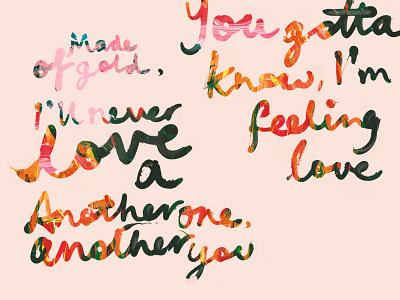 Made
of gold,
I'll never
love
a
Another one,
another you
You gotta
know, I'm
feeling
love